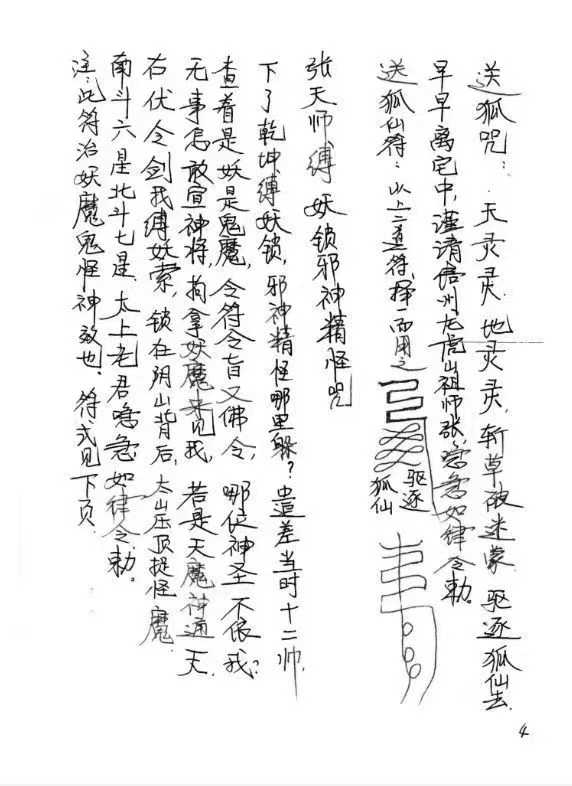 送狐咒：天灵灵，地灵灵，斩草破迷蒙，驱逐狐仙去，
早早离宅中，谨请信州龙虎山祖师张，急急如律令勅。
送狐仙符：以上二道符，择一而用之
驱逐
狐仙
张天师缚妖锁邪神精怪咒
下了乾坤缚妖锁，邪神精怪哪里躲？出遣差当时十二帅，
查着是妖是鬼魔，令符令旨又佛令，哪位神圣不依我？
无事怎敢宣神将，拘拿妖魔来见我，若是天魔神通天，
右伏令剑我缚妖索，锁在阴山背后，太山压顶捉怪魔，
南斗六星北斗七星，太上老君急急如律令勅。
注：此符治妖魔鬼怪神效也，符式见下页
4